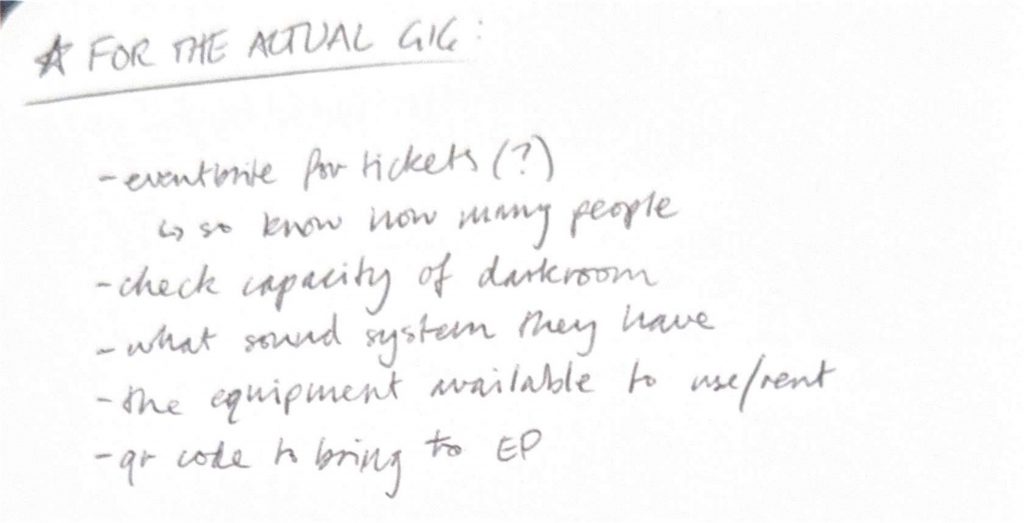 ☆ FOR THE ACTUAL GIG:
- eventbrite for tickets (?)
↳ so know how many people
- check capacity of darkroom
- what sound system they have
- the equipment available to use/rent
- qr code to bring to EP